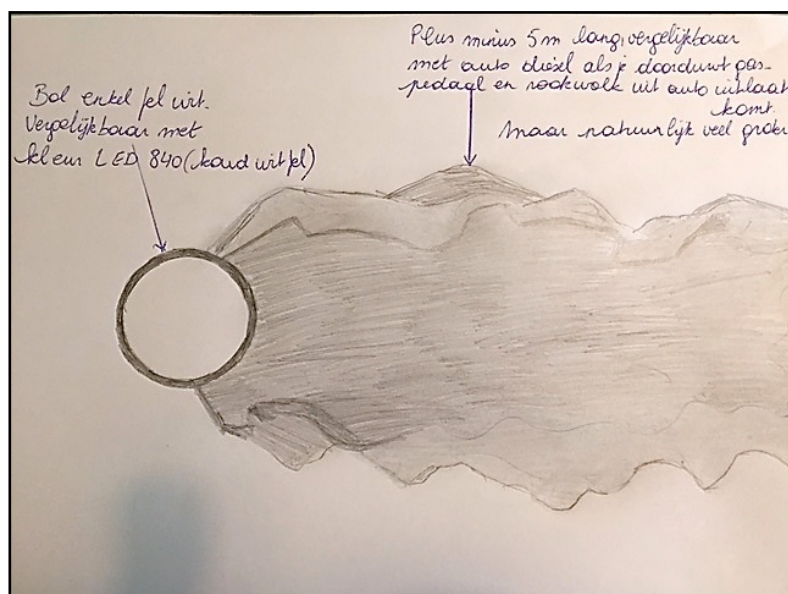 Bol enkel fel wit.
Vergelijkbaar met
kleur LED 840 (koud wit fel)
Plus minus 5m lang, vergelijkbaar
met auto diesel als je doorduwt gas-
pedaal en rookwolk uit auto uitlaat
komt.
Maar natuurlijk veel groter